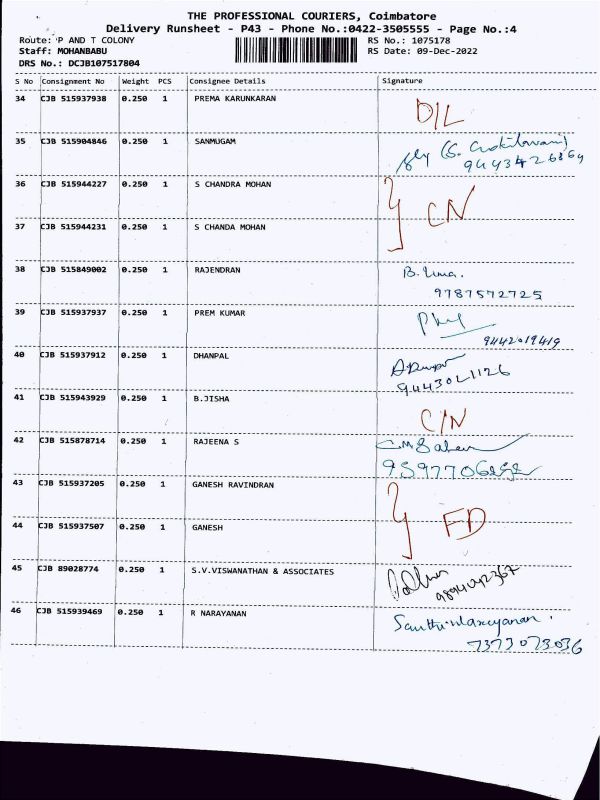 THE PROFESSIONAL COURIERS, Coimbatore
Delivery Runsheet - P43 - Phone No.:0422-3505555 - Page No.:4
Route: P AND T COLONY RS No.: 1075178
Staff: MOHANBABU RS Date: 09-Dec-2022
DRS No.: DCJB107517804
S No Consignment No Weight PCS Consignee Details Signature
34 CJB 515937938 0.250 1 PREMA KARUNKARAN D/L
35 CJB 515904846 0.250 1 SANMUGAM
36 CJB 515944227 0.250 1 S CHANDRA MOHAN CN
37 CJB 515944231 0.250 1 S CHANDA MOHAN
38 CJB 515849002 0.250 1 RAJENDRAN B. Uma.
9787572725
39 CJB 515937937 0.250 1 PREM KUMAR
9442019419
40 CJB 515937912 0.250 1 DHANPAL
9443021126
41 CJB 515943929 0.250 1 B.JISHA C/N
42 CJB 515878714 0.250 1 RAJEENA S
43 CJB 515937205 0.250 1 GANESH RAVINDRAN FD
44 CJB 515937507 0.250 1 GANESH
45 CJB 89028774 0.250 1 S.V.VISWANATHAN & ASSOCIATES
9894042367
46 CJB 515939469 0.250 1 R NARAYANAN
7373073036